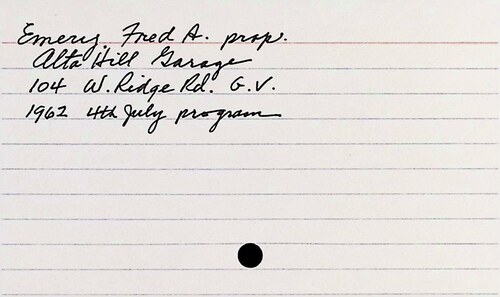 Emery, Fred A. prop.
Alta Hill Garage
104 W. Ridge Rd. G.V.
1962 4th July program